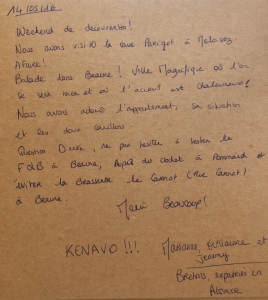 14/05/16
Weekend de découvertes!
Nous avons visité la cave à
Balade dans Beaune! Ville Magnifique où l'on
se sent bien et où l'accueil est chaleureux!
Nous avons adoré l'appartement, sa situation
et les doux
Question Diner, ne pas hésiter à tester le
à Beaune, du clocher à Pommard et
éviter la Brasserie le Carnot (rue Carnot)
à Beaune.
Merci Beaucoup!
KENAVO!!!
Marianne, Guillaume et
Jeremy
Bretons, expatriés en
Alsace